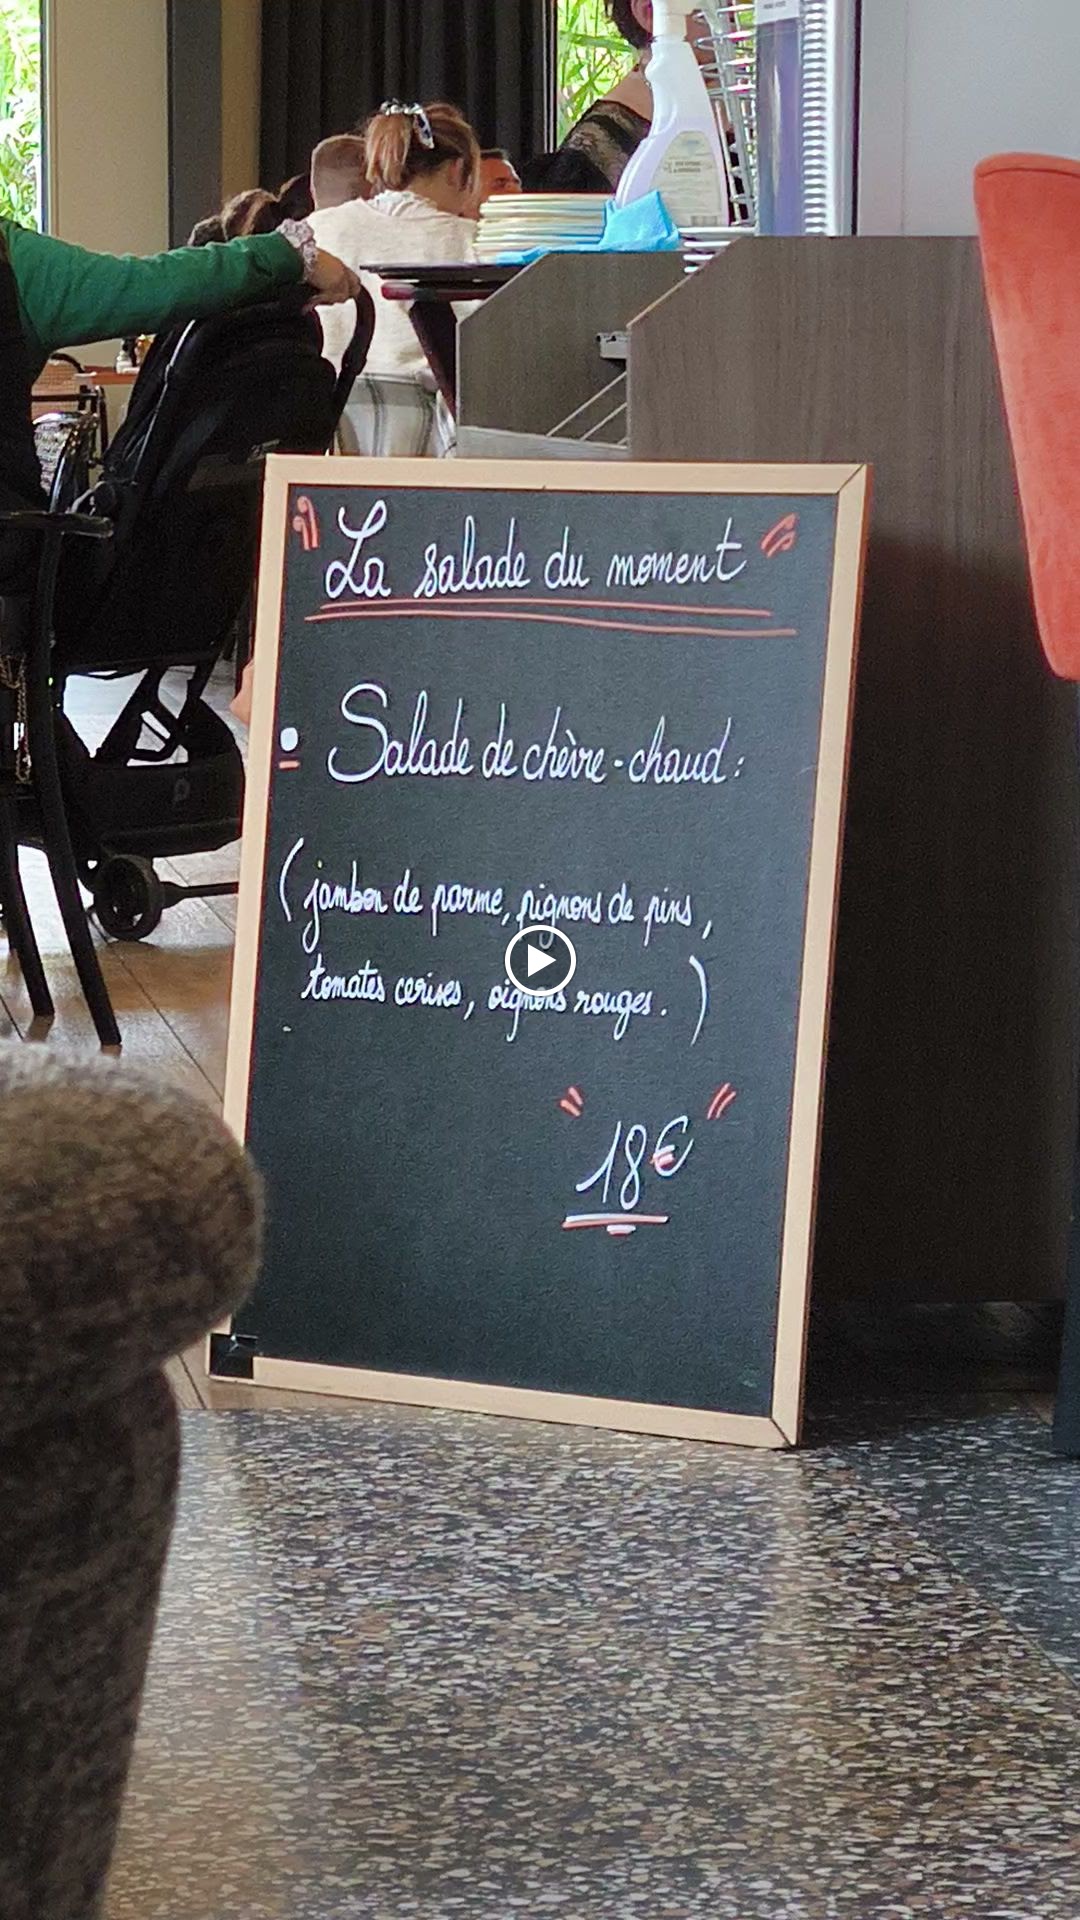 La salade du moment
Salade de chèvre-chaud :
( jambon de parme, pignons de pins,
tomates cerises, oignons rouges. )
18€